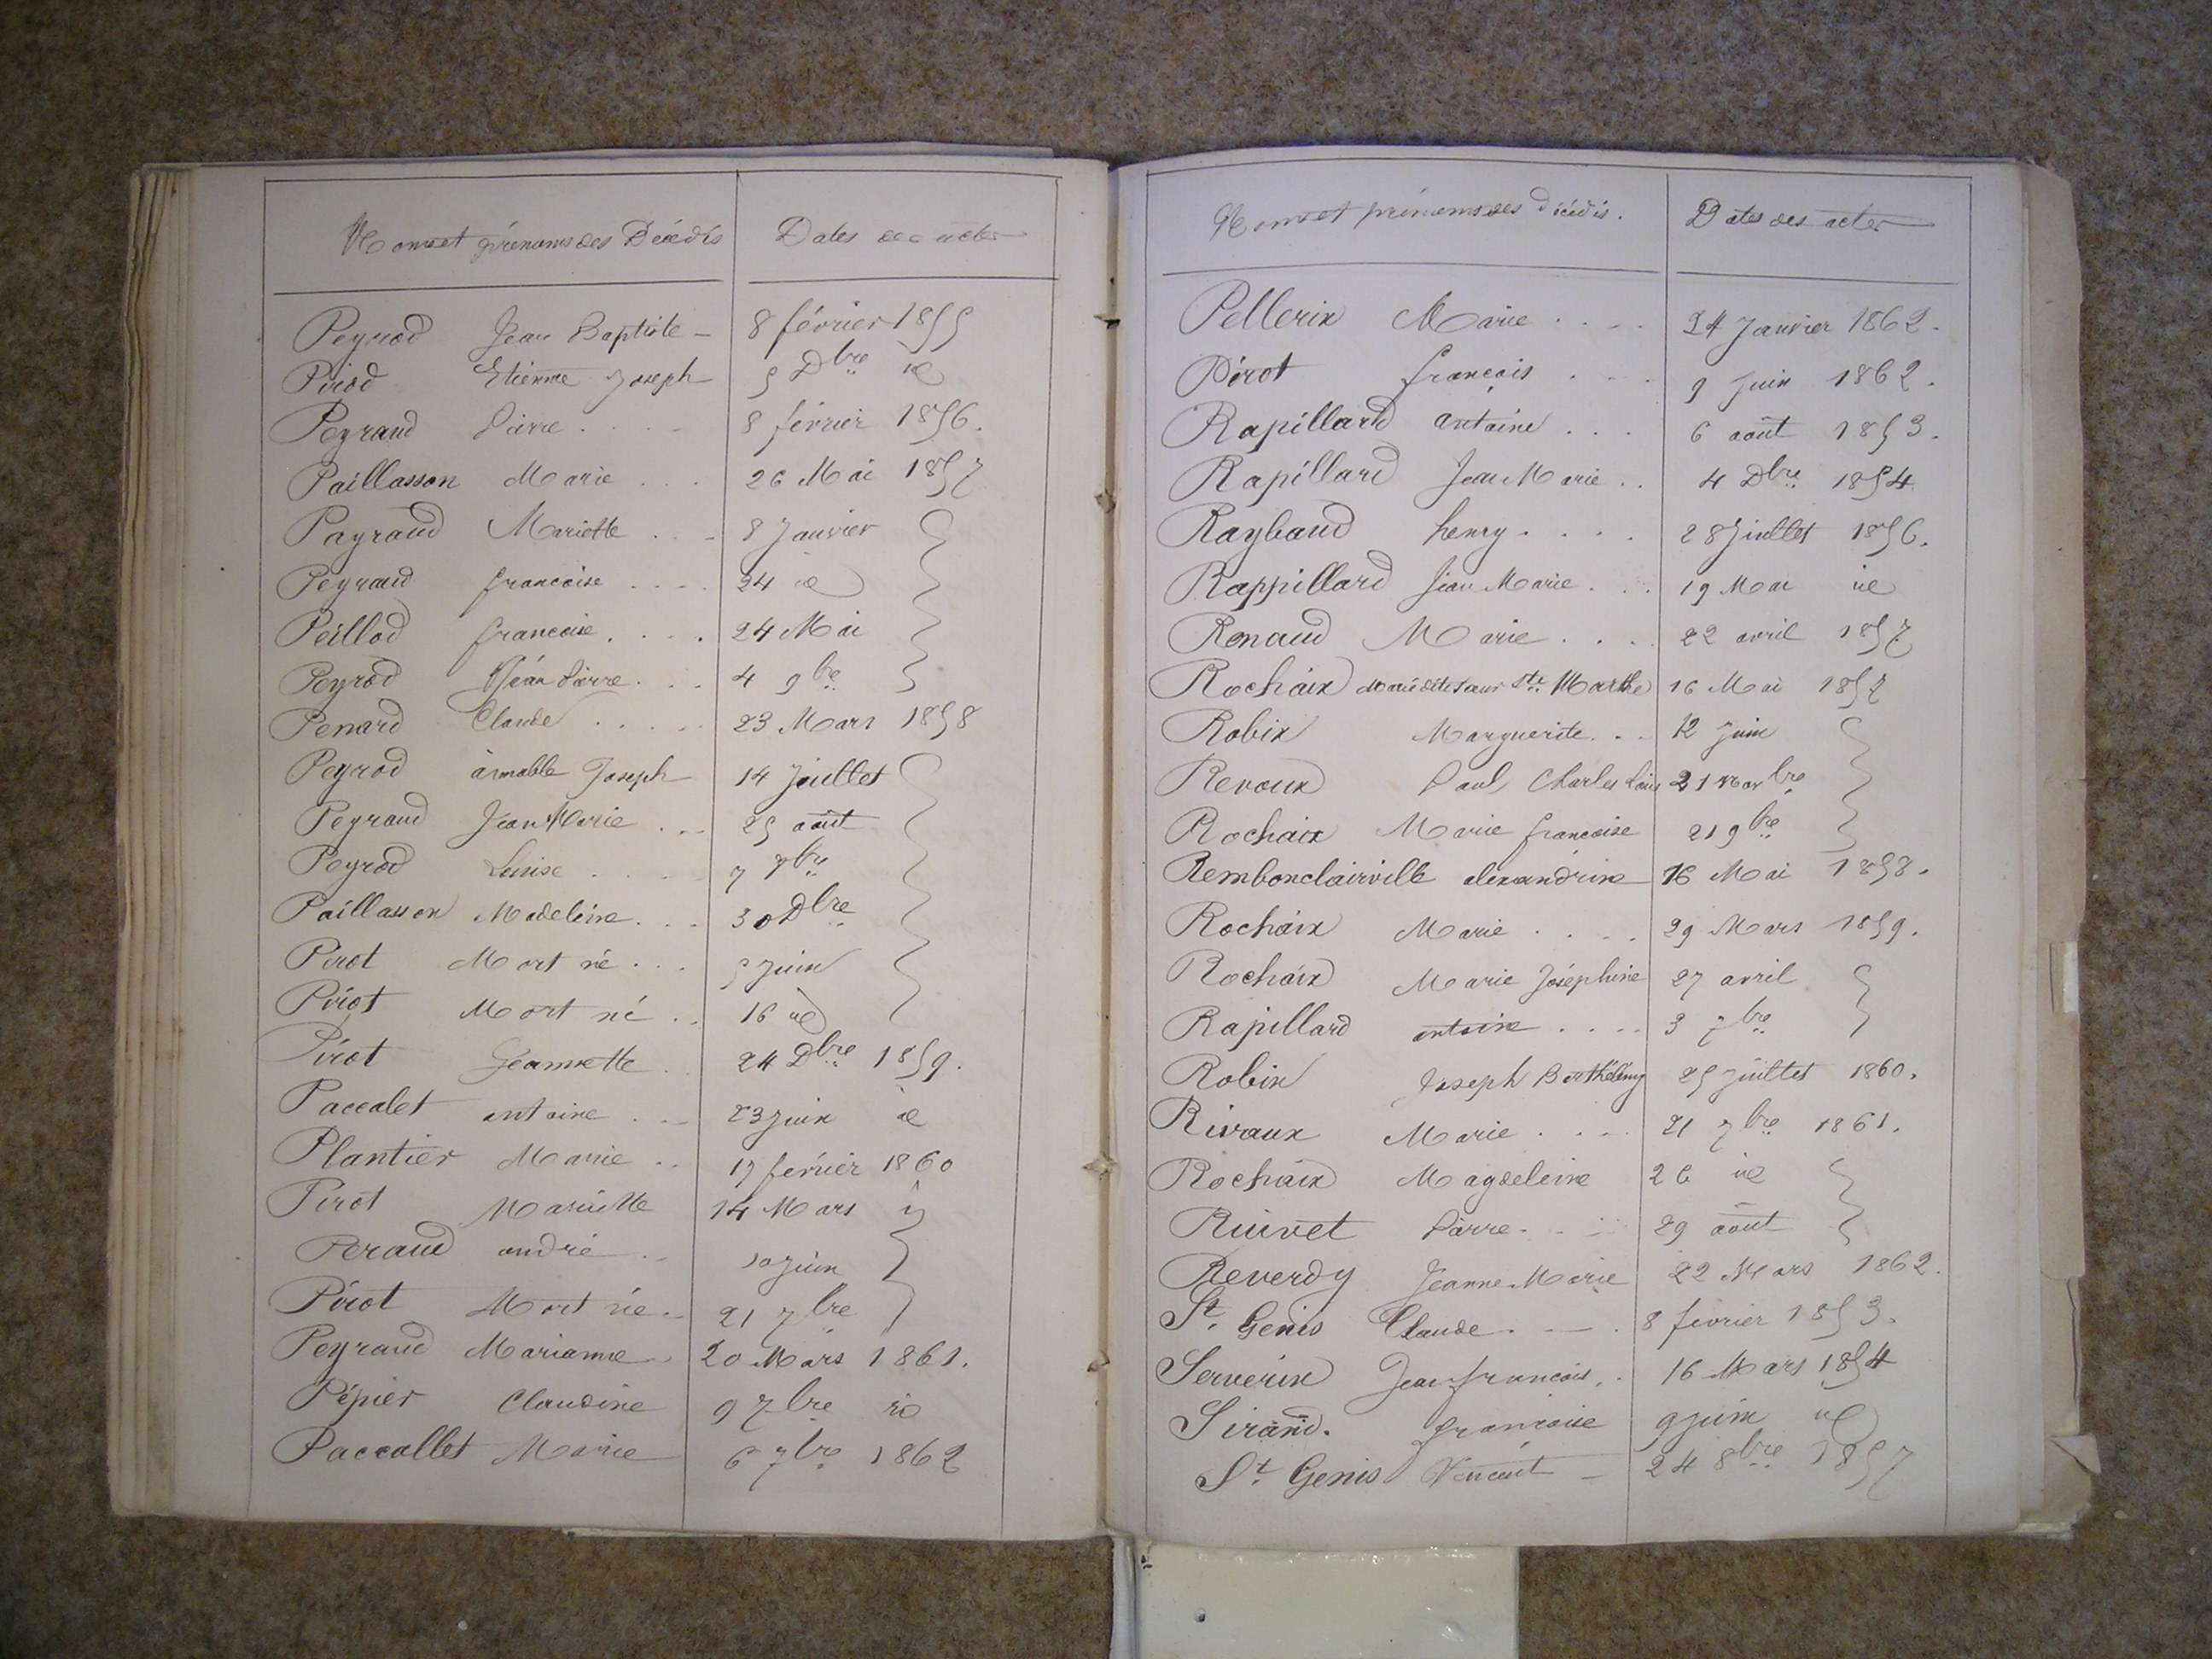 Noms et prénoms des Décédés Dates des actes
Peyrod Jean Baptiste 8 février 1855
Pirod Etienne Joseph 5 Dbre id
Peyraud Pierre 8 février 1856.
Paillasson Marie 26 Mai 1857
Payraud Mariette 8 Janvier
Peyraud françoise 24 id
Peillod françoise 24 Mai
Peyrod Jéan Pierre 4 9bre
Penard Claude 23 Mars 1858
Peyrod aimable Joseph 14 Juillet
Peyraud Jean Marie 25 août
Peyrod Louise 7 7bre
Paillasson Madeleine 30 Dbre
Pirot Mort né 5 Juin
Piriot Mort né 16 id
Pirot Jeannette 24 Dbre 1859.
Paccalet antoine 23 Juin id
Plantier Marie 17 février 1860
Pirot Mariette 14 Mars
Peraud andré 10 Juin
Pirot Mort né 21 7bre
Peyraud Marianne 20 Mars 1861.
Pépier Claudine 9 7bre id
Paccallet Marie 6 7bre 1862
Noms et prénoms des décédés. Dates des actes
Pellerin Marie 24 Janvier 1862.
Pirot françois 9 Juin 1862.
Rapillard antoine 6 août 1853.
Rapillard Jean Marie 4 Dbre 1854
Raybaud henry 28 Juillet 1856.
Rappillard Jean Marie 19 Mai id
Renaud Marie 22 avril 1857
Rochaix Marie dite Sœur Ste Marthe 16 Mai 1857
Robin Marguerite 12 Juin
Revoux Paul Charles Louis 21
Rochaix Marie françoise 21 9bre
Rembonclairville alexandrine 16 Mai 1858.
Rochaix Marie 29 Mars 1859.
Rochaix Marie Joséphine 27 avril
Rapillard antoine 3 7bre
Robin Joseph Barthélemy 25 Juillet 1860.
Rivaux Marie 21 7bre 1861.
Rochaix Magdeleine 26 id
Ruivet Pierre 29 août
Reverdy Jeanne Marie 22 Mars 1862.
St. Genis Claude 8 février 1853.
Serverin Jean françois 16 Mars 1854
Sirand. françoise 9 Juin id
St. Genis Vincent 24 8bre 1857